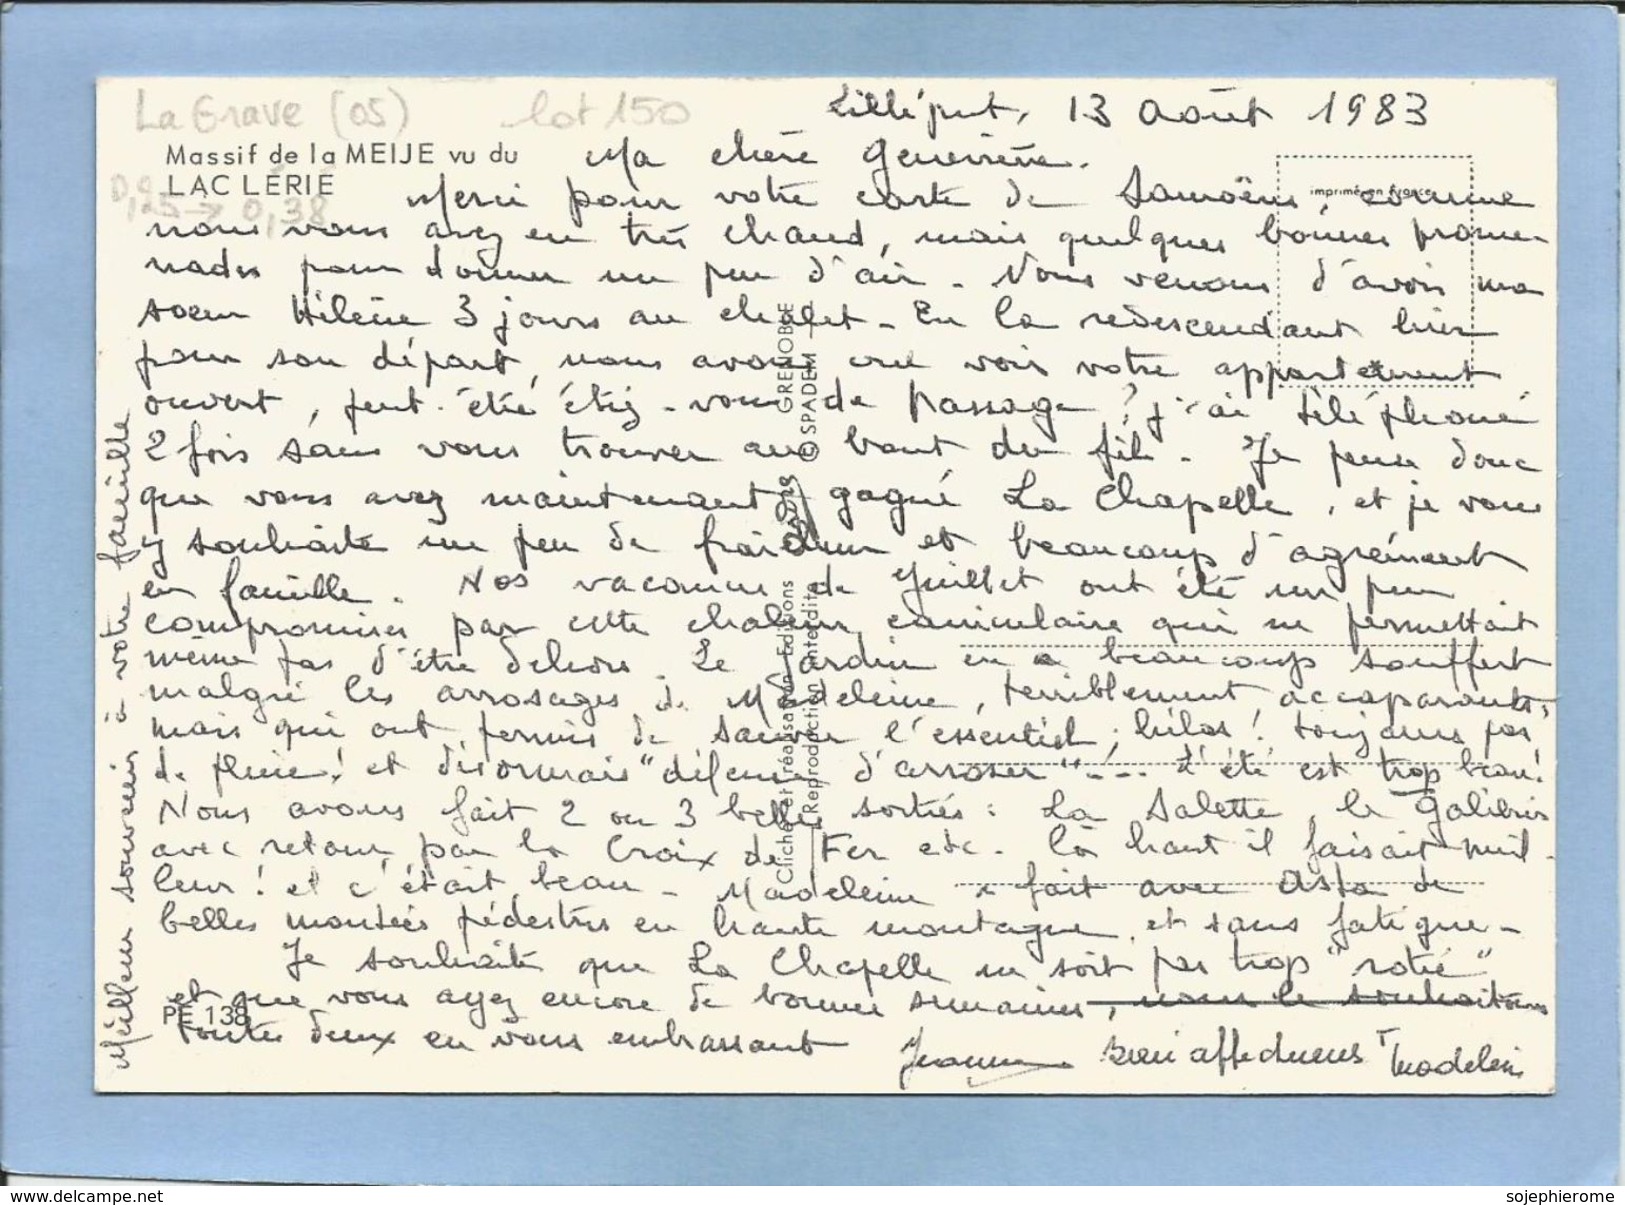 La Grave (05) lot 150
Massif de la MEIJE vu du
LAC LÉRIÉ
0,25 → 0,38
imprimé en France
Lilliput, 13 Août 1983
Ma chère Geneviève.
Merci pour votre carte de Samoëns, comme
nous vous avez eu très chaud, mais quelques bonnes prome-
nades pour donner un peu d'air. Nous venons d'avoir ma
soeur Hélène 3 jours au chalet - En la redescendant hier
pour son départ, nous avons cru voir votre appartement
ouvert, peut-être étiez-vous de passage ? j'ai téléphoné
2 fois sans vous trouver au bout du fil. Je pense donc
que vous avez maintenant gagné La Chapelle, et je vous
y souhaite un peu de fraîcheur et beaucoup d'agrément
en famille. Nos vacances de Juillet ont été un peu
compromises par cette chaleur caniculaire qui ne permettait
même pas d'être dehors. Le Jardin en a beaucoup souffert
malgré les arrosages de Madeleine, terriblement accaparants,
mais qui ont permis de sauver l'essentiel ; hélas ! toujours pas
de pluie ! et désormais "défense d'arroser" .... L'été est trop beau !
Nous avons fait 2 ou 3 belles sorties : La Salette, le Galibier
avec retour par la Croix de Fer etc - là haut il faisait meil-
leur ! et c'était beau - Madeleine a fait avec Asta de
belles montées pédestres en haute montagne, et sans fatigue -
Je souhaite que La Chapelle ne soit pas trop "rotie"
et que vous ayez encore de bonnes semaines, nous le souhaitons
toutes deux en vous embrassant Jeanne bien affectueus<sup>t</sup> Madeleine
PE 138
Meilleur souvenir à votre famille
Cliché et réalisation Editions GRENOBLE
Reproduction interdite © SPADEM
www.delcampe.net
sojephierome